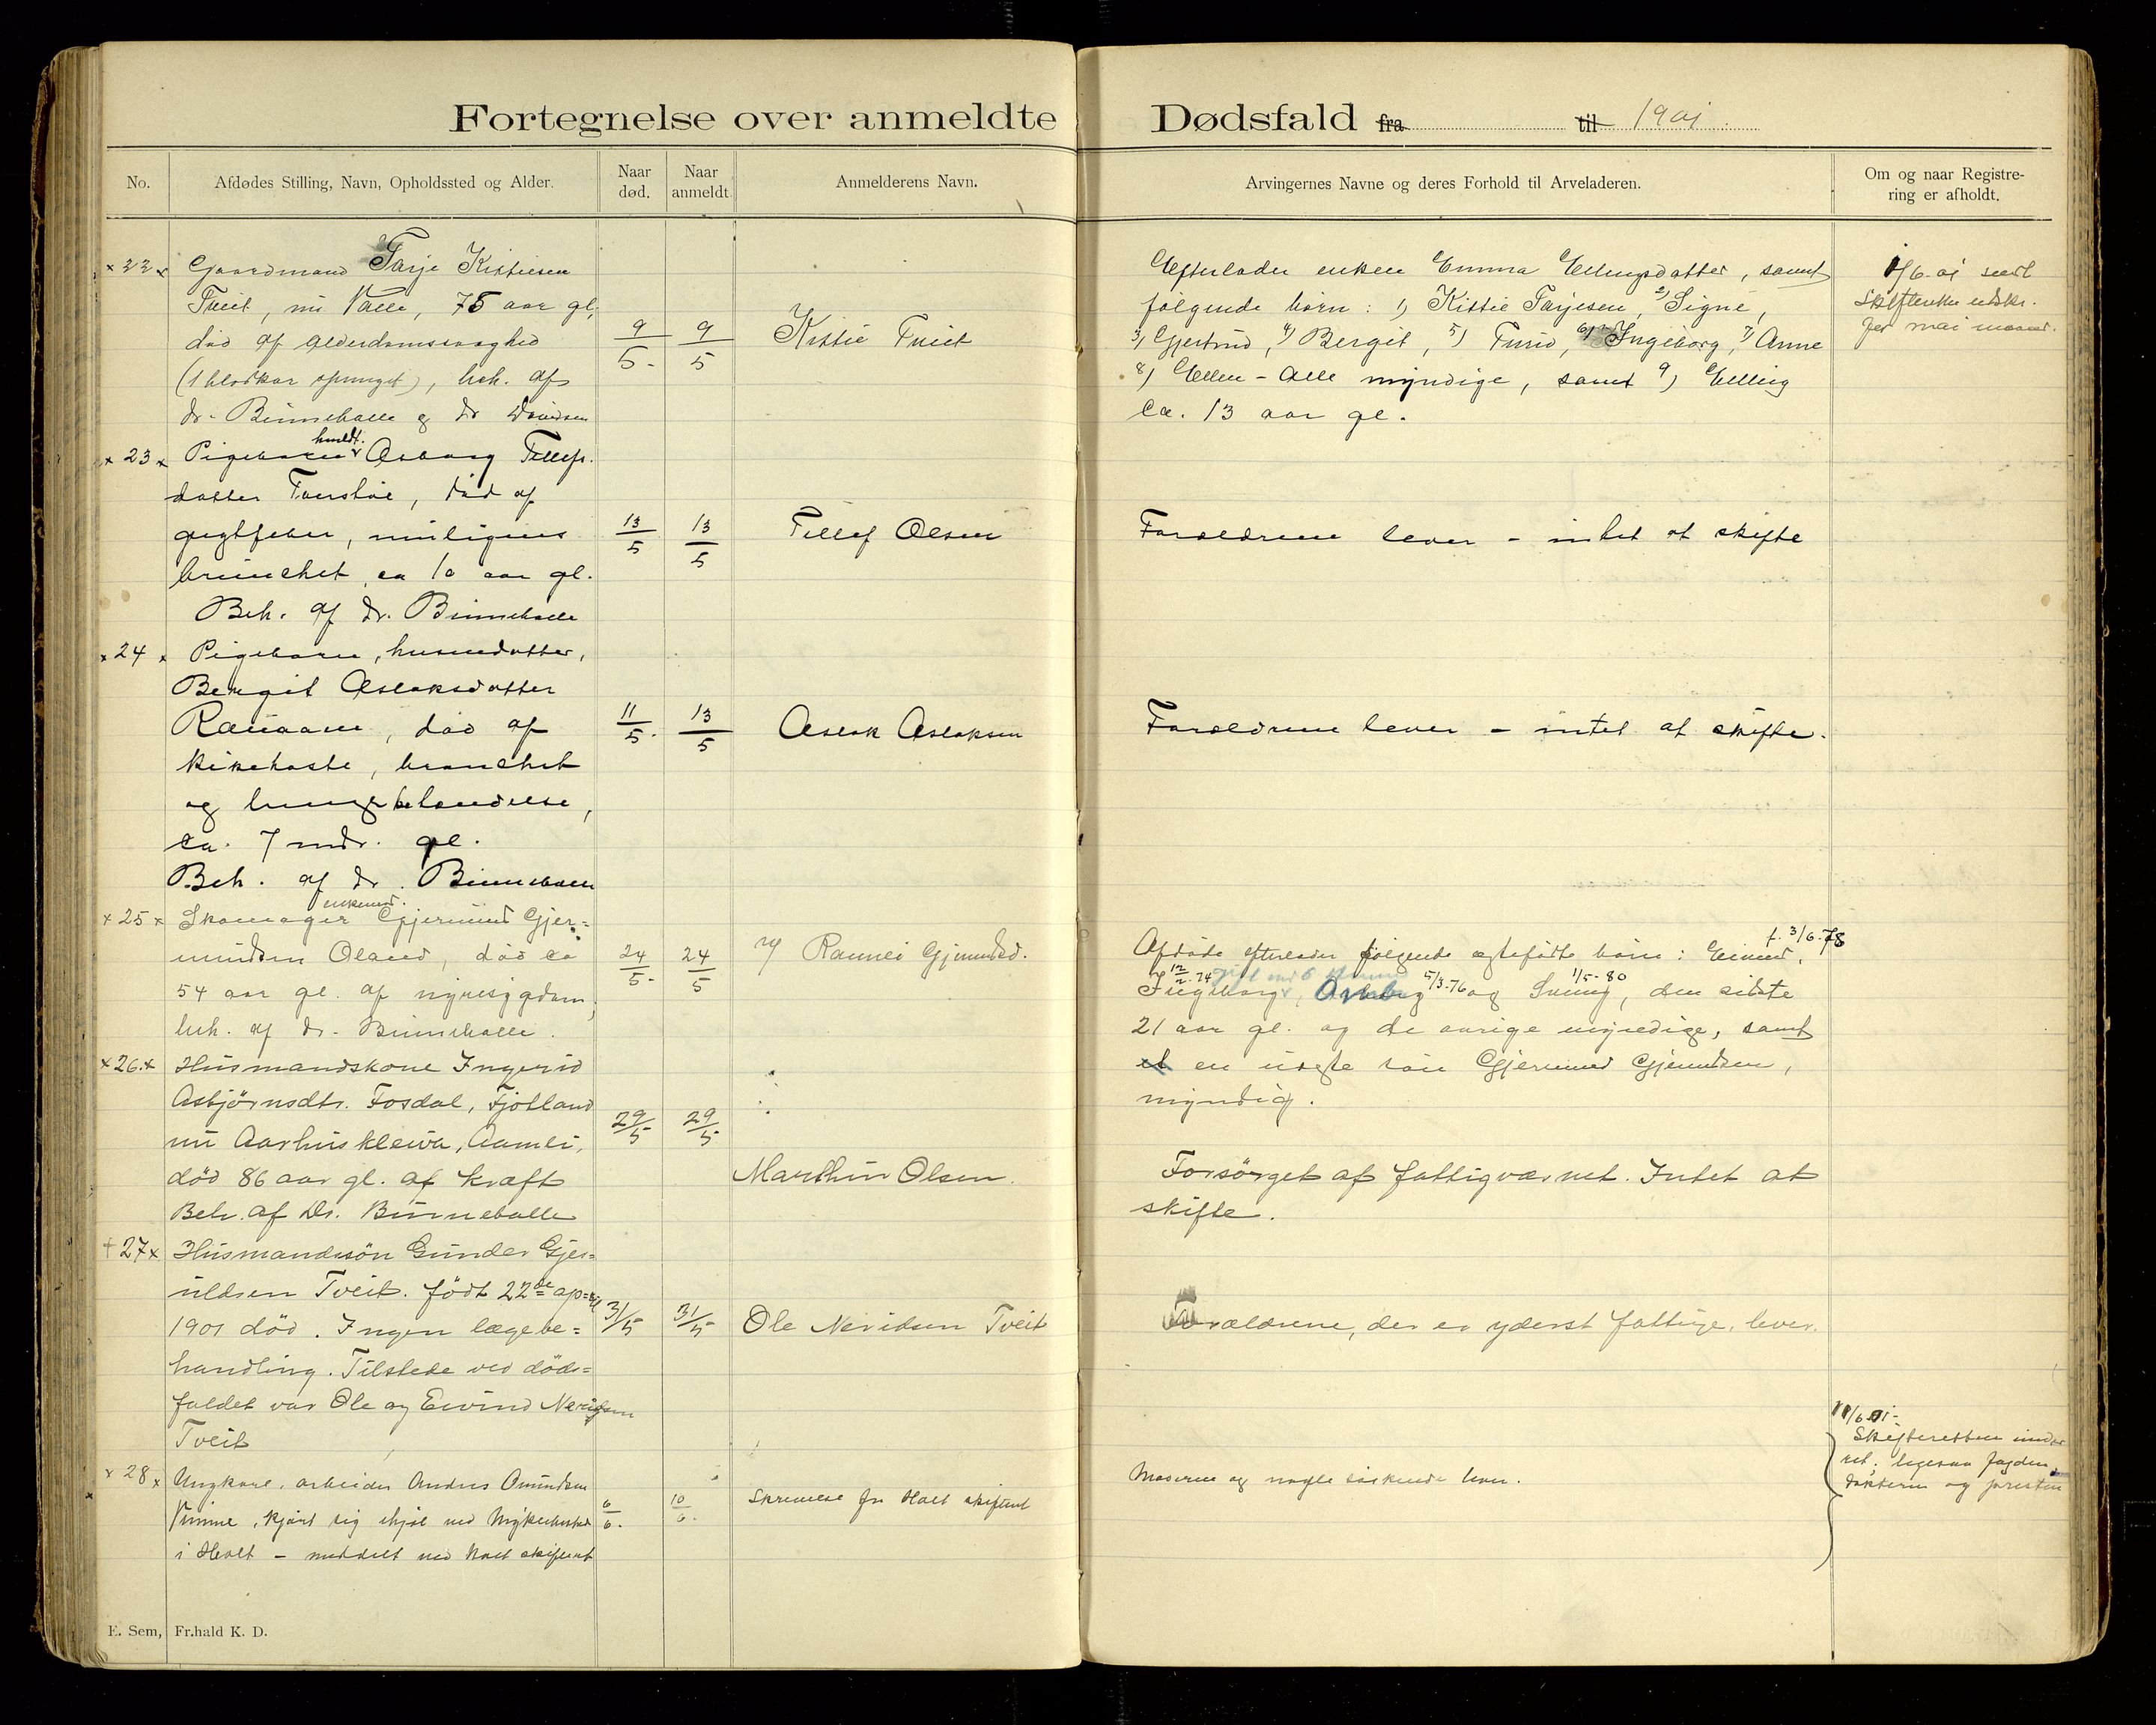 Fortegnelse over anmeldte Dødsfald fra til 1901.
No. Afdødes Stilling, Navn, Opholdssted og Alder. Naar død. Naar anmeldt. Anmelderens Navn. Arvingernes Navne og deres Forhold til Arveladeren. Om og naar Registrering er afholdt.
x 22 x Gaardmand Tarje Kistiesen
Tveit, nu Valle, 75 aar gl,
død af alderdomssvaghed
(1 blodkar sprunget), beh. af
dr. Binneballe og dr
9/5. 9/5
Kistie Tveit
Efterlader enken Emma Ellingsdatter, samt
følgende børn: 1) Kistie Tarjesen, 2) Signe,
3) Gjertrud, 4) Bergit, 5) Turid, 6) Ingeborg, 7) Anne
8) Ellen - alle myndige, samt 9) Elling
ca. 13 aar gl.
1/6.01 sendt
for mai maaned.
x 23 x Pigebarn Asborg Tellefs.
datter død af
gigtfeber, muligens
brunchit, ca 10 aar gl.
Beh. af dr. Binneballe
13/5 13/5
Tellef Olsen
Forældrene lever - intet at skifte
x 24 x Pigebarn, husmdatter,
Bergit Aslaksdatter
død af
kikehoste, bronchit
og lungebetændelse,
ca. 7 mdr. gl.
Beh. af dr. Binneballe
11/5. 13/5
Aslak Aslaksen
Forældrene lever - intet at skifte.
x 25 x Skomager enkemd. Gjermund Gjer=
mundsen Øland, død ca
54 aar gl. af nyresygdom,
beh. af dr. Binneballe.
24/5. 24/5
Rannei Gjermundsd.
Afdøde efterlader følgende ægtefødte børn: Eivind, f. 3/6.78
Ingeborg, Asborg 5/3-76 og 1/5-80, den sidste
21 aar gl. og de øvrige myndige, samt
en uægte søn Gjermund Gjermundsen,
myndig.
x 26. x Husmandskone Ingerid
Asbjørnsdtr. Fosdal, Fjotland
nu Aarhuskleiva, Aamli,
død 86 aar gl. af kræft
Beh. af Dr. Binneballe
29/5 29/5
Marthin Olsen.
Forsörget af fattigvæsnet. Intet at
skifte.
+ 27 x Husmandssön Gunder Gjer=
uldsen Tveit. födt 22de april
1901 död. Ingen lægebe=
handling. Tilstede ved döds=
faldet var Ole og Eivind Neridsen
Tveit
31/5 31/5
Ole Neridsen Tveit
Forældrene, der er yderst fattige, lever.
x 28 x Ungkarl, arbeider Anders Omundsen
Vimme, kjørt sig ihjel ved
i Holt - meddelt ved Holt skifteret
6/6. 10/6.
Skrivelse fra Holt skifteret
Moderen og nogle søskende lever.
11/6 01-
Skifteretten under
ret. ligesaa fogden,
doktoren og presten
E. Sem, Fr.hald K. D.